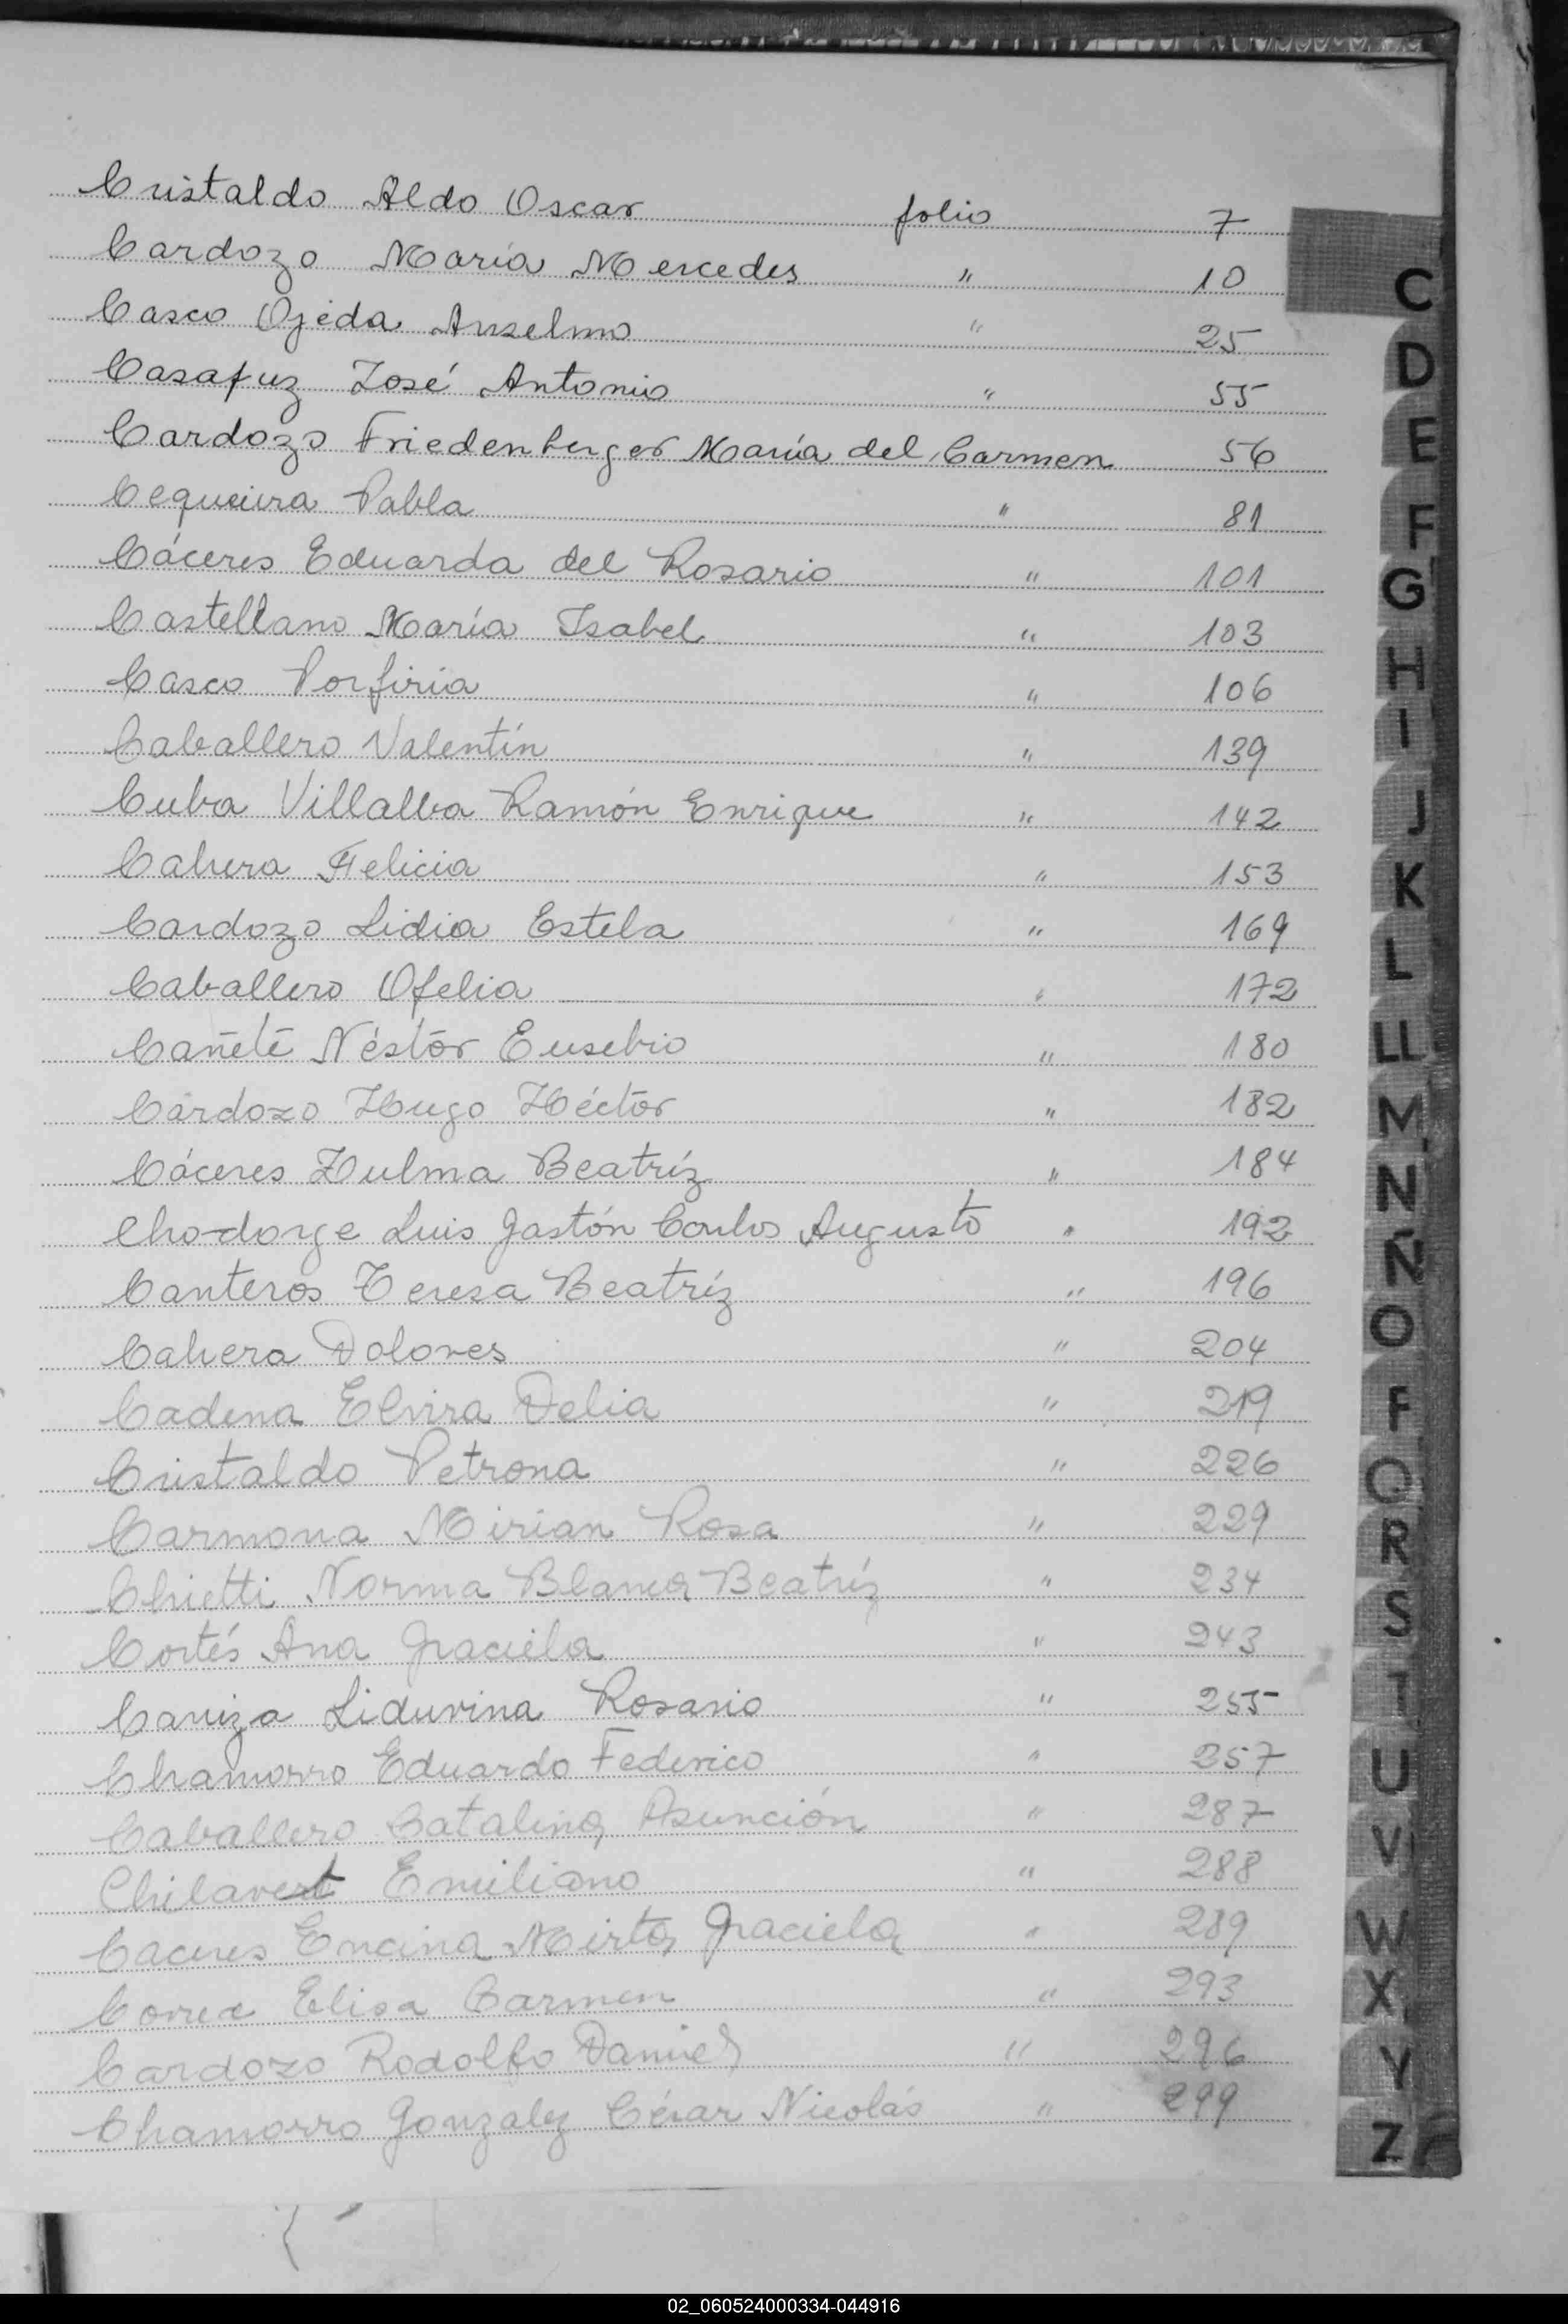 Cristaldo Aldo Oscar folio 7
Cardozo María Mercedes " 10
Casco Ojeda Anselmo " 25
Casafuz José Antonio " 55
Cardozo Friedenberger María del Carmen 56
Cequeira Pabla " 81
Cáceres Eduarda del Rosario " 101
Castellano María Isabel " 103
Casco Porfiria " 106
Caballero Valentín " 139
Cuba Villalba Ramón Enrique " 142
Cabrera Felicia " 153
Cardozo Lidia Estela " 169
Caballero Ofelia " 172
Cañete Néstor Eusebio " 180
Cardozo Hugo Héctor " 182
Cáceres Zulma Beatríz " 184
Chodorge Luis Gastón Carlos Augusto " 192
Canteros Teresa Beatríz " 196
Cabrera Dolores " 204
Cadena Elvira Delia " 219
Cristaldo Petrona " 226
Carmona Mirian Rosa " 229
Chietti Norma Blanca Beatríz " 234
Cortés Ana Graciela " 243
Caniza Liduvina Rosario " 255
Chamorro Eduardo Federico " 257
Caballero Catalina Asunción " 287
Chilavert Emiliano " 288
Caceres Encina Mirta Graciela " 289
Correa Elisa Carmen " 293
Cardozo Rodolfo Daniel " 296
Chamorro Gonzalez César Nicolás " 299
C
D
E
F
G
H
I
J
K
L
LL
M
N
Ñ
O
P
Q
R
S
T
U
V
W
X
Y
Z
02_060524000334-044916